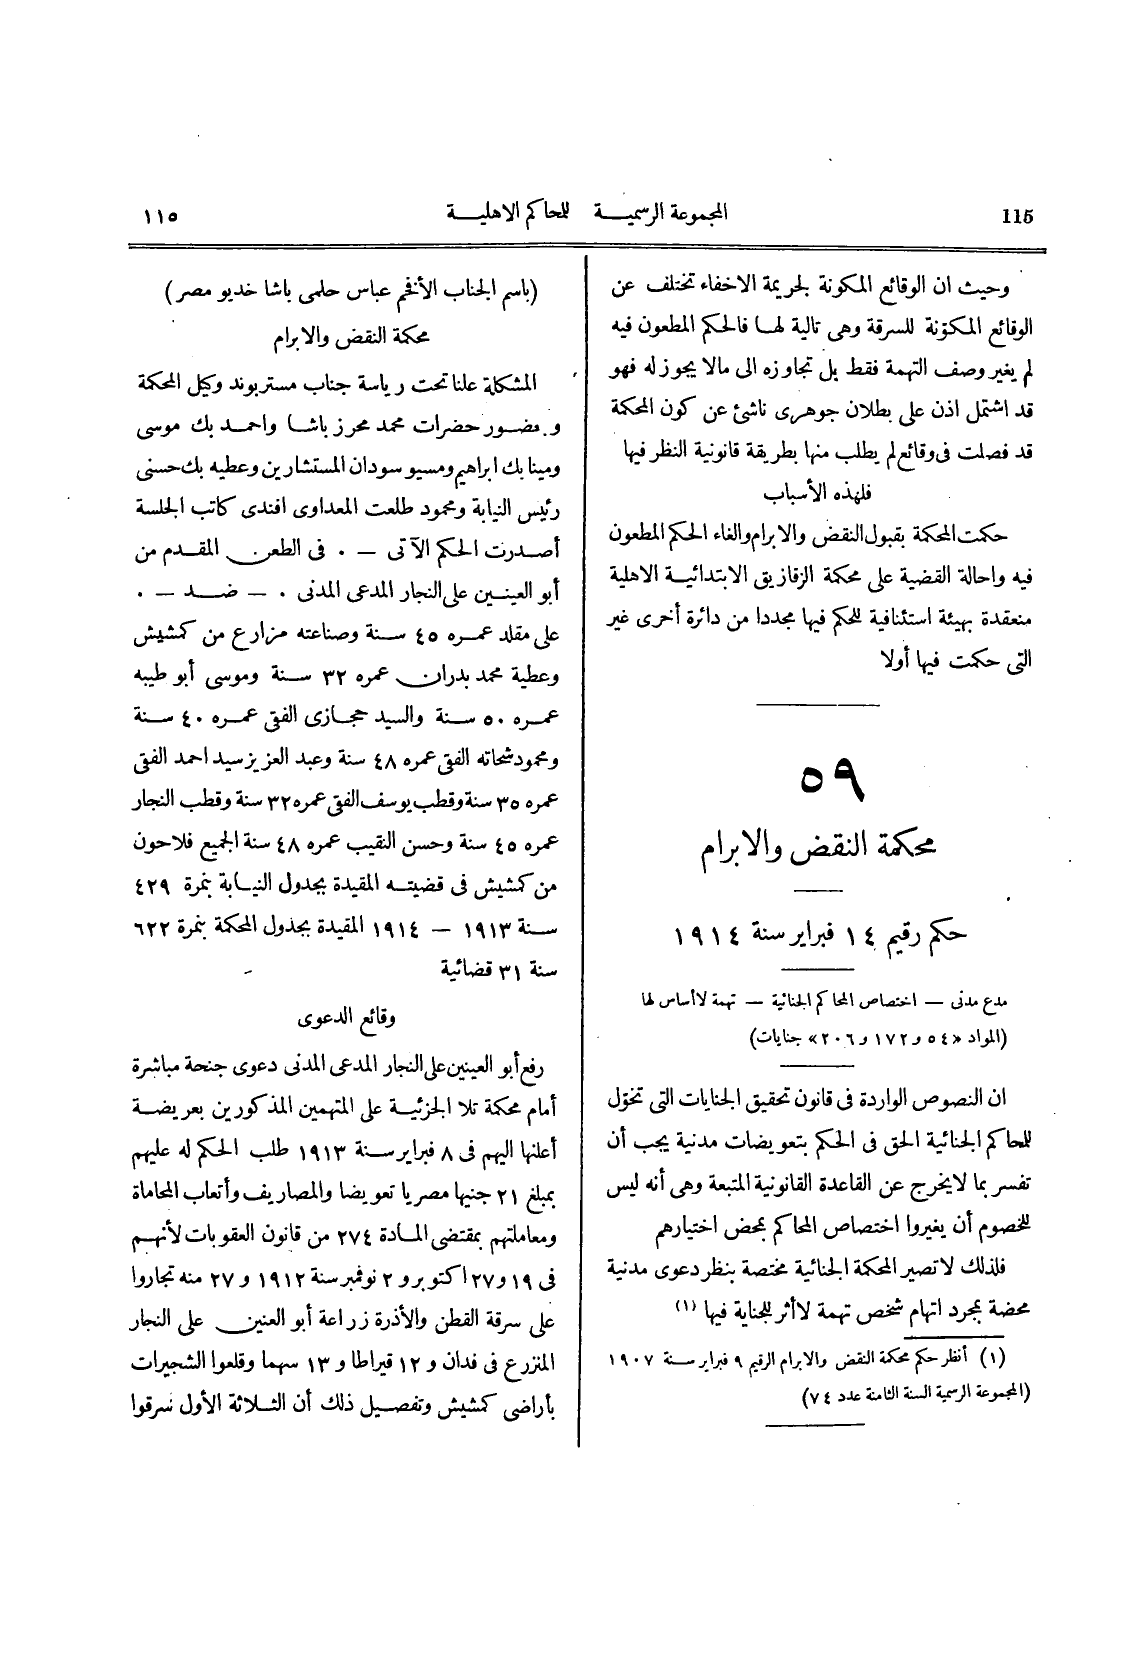 115 المجموعة الرسمية للمحاكم الاهلية ١١٥
وحيث ان الوقائع المكونة لجريمة الاخفاء تختلف عن
الوقائع المكونة للسرقة وهى تالية لها فالحكم المطعون فيه
لم يغير وصف التهمة فقط بل تجاوزه الى مالا يجوز له فهو
قد اشتمل اذن على بطلان جوهرى ناشئ عن كون المحكمة
قد فصلت فى وقائع لم يطلب منها بطريقة قانونية النظر فيها
فلهذه الأسباب
حكمت المحكمة بقبول النقض والابرام والغاء الحكم المطعون
فيه واحالة القضية على محكمة الزقازيق الابتدائية الاهلية
منعقدة بهيئة استئنافية للحكم فيها مجددا من دائرة أخرى غير
التى حكمت فيها أولا
٥٩
محكمة النقض والابرام
حكم رقيم ١٤ فبراير سنة ١٩١٤
مدع مدنى — اختصاص المحاكم الجنائية — تهمة لا أساس لها
(المواد «٥٤ و ١٧٢ و ٢٠٦» جنايات)
ان النصوص الواردة فى قانون تحقيق الجنايات التى تخوّل
للمحاكم الجنائية الحق فى الحكم بتعويضات مدنية يجب أن
تفسر بما لا يخرج عن القاعدة القانونية المتبعة وهى أنه ليس
للخصوم أن يغيروا اختصاص المحاكم بمحض اختيارهم
فلذلك لا تصير المحكمة الجنائية مختصة بنظر دعوى مدنية
محضة بمجرد اتهام شخص تهمة لا أثر للجناية فيها (١)
(١) أنظر حكم محكمة النقض والابرام الرقيم ٩ فبراير سنة ١٩٠٧
(المجموعة الرسمية السنة الثامنة عدد ٧٤)
(باسم الجناب الأفخم عباس حلمى باشا خديو مصر)
محكمة النقض والابرام
المشكلة علنا تحت رياسة جناب مستر بوند وكيل المحكمة
وبحضور حضرات محمد محرز باشا واحمد بك موسى
ومينا بك ابراهيم ومسيو سودان المستشارين وعطيه بك حسنى
رئيس النيابة ومحمود طلعت المعداوى افندى كاتب الجلسة
أصدرت الحكم الآتى — . فى الطعن المقدم من
أبو العينين على النجار المدعى المدنى . — ضد — .
على مقلد عمره ٤٥ سنة وصناعته مزارع من كمشيش
وعطية محمد بدران عمره ٣٢ سنة وموسى أبو طيبه
عمره ٥٠ سنة والسيد حجازى الفقى عمره ٤٠ سنة
ومحمود شحاته الفقى عمره ٤٨ سنة وعبد العزيز سيد احمد الفقى
عمره ٣٥ سنة وقطب يوسف الفقى عمره ٣٢ سنة وقطب النجار
عمره ٤٥ سنة وحسن النقيب عمره ٤٨ سنة الجميع فلاحون
من كمشيش فى قضيته المقيدة بجدول النيابة بنمرة ٤٢٩
سنة ١٩١٣ — ١٩١٤ المقيدة بجدول المحكمة بنمرة ٦٢٢
سنة ٣١ قضائية
وقائع الدعوى
رفع أبو العينين على النجار المدعى المدنى دعوى جنحة مباشرة
أمام محكمة تلا الجزئية على المتهمين المذكورين بعريضة
أعلنها اليهم فى ٨ فبراير سنة ١٩١٣ طلب الحكم له عليهم
بمبلغ ٢١ جنيها مصريا تعويضا والمصاريف وأتعاب المحاماة
ومعاملتهم بمقتضى المادة ٢٧٤ من قانون العقوبات لأنهم
فى ١٩ و٢٧ اكتوبر و ٢ نوفمبر سنة ١٩١٢ و ٢٧ منه تجاروا
على سرقة القطن والأذرة زراعة أبو العنين على النجار
المنزرع فى فدان و ١٢ قيراطا و ١٣ سهما وقلعوا الشجيرات
بأراضى كمشيش وتفصيل ذلك أن الثلاثة الأول سرقوا